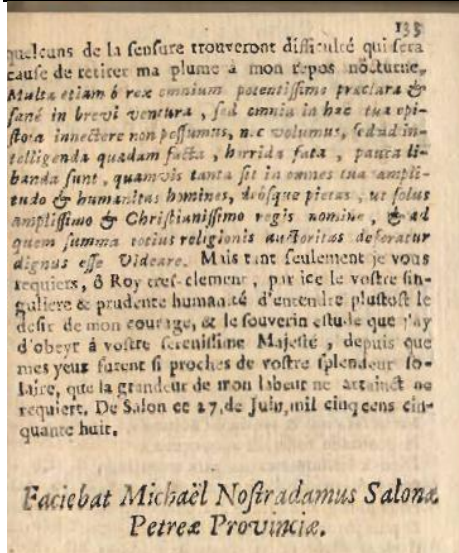 135
quelcuns de la censure trouveront difficulté qui sera
cause de retirer ma plume à mon repos nocturne.
Multa etiam ô rex omnium potentissime præclara &
sanè in brevi ventura, sed omnia in hac tua epi-
stola innectere non possumus, nec volumus, sed ad in-
telligenda quædam facta, horrida fata, pauca li-
banda sunt, quamvis tanta sit in omnes tua ampli-
tudo & humanitas homines, deósque pietas, ut solus
amplissimo & Christianissimo regis nomine, & ad
quem summa totius religionis auctoritas deferatur
dignus esse Videare. Mais tant seulement je vous
requiers, ô Roy tres-clement, par icelle vostre sin-
guliere & prudente humanité d'entendre plustost le
desir de mon courage, & le souverin estude que j'ay
d'obeyr à vostre serenissime Majesté, depuis que
mes yeux furent si proches de vostre splendeur so-
laire, que la grandeur de mon labeur ne attainct ne
requiert. De Salon ce 27. de Juin, mil cinq cens cin-
quante huit.
Faciebat Michaël Nostradamus Salonæ
Petreæ Provinciæ.